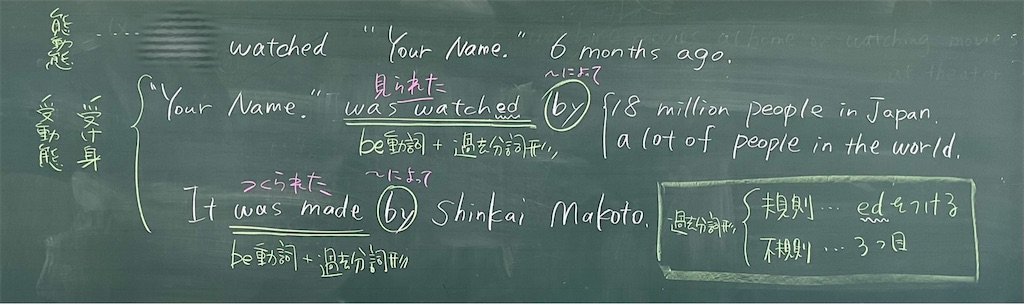 能動態 watched "Your Name." 6 months ago.
見られた ～によって
受動態 受け身 "Your Name." was watched by 18 million people in Japan.
be動詞 + 過去分詞形 a lot of people in the world.
つくられた ～によって
It was made by Shinkai Makoto.
be動詞 + 過去分詞形
過去分詞形 規則… edをつける
不規則… 3つ目